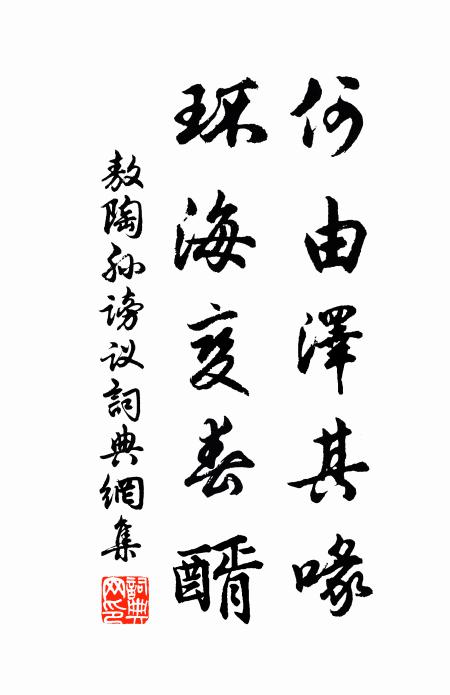 何由澤其喙
环海变春醑
敖陶孙谤议詞典網集
詞典
网印